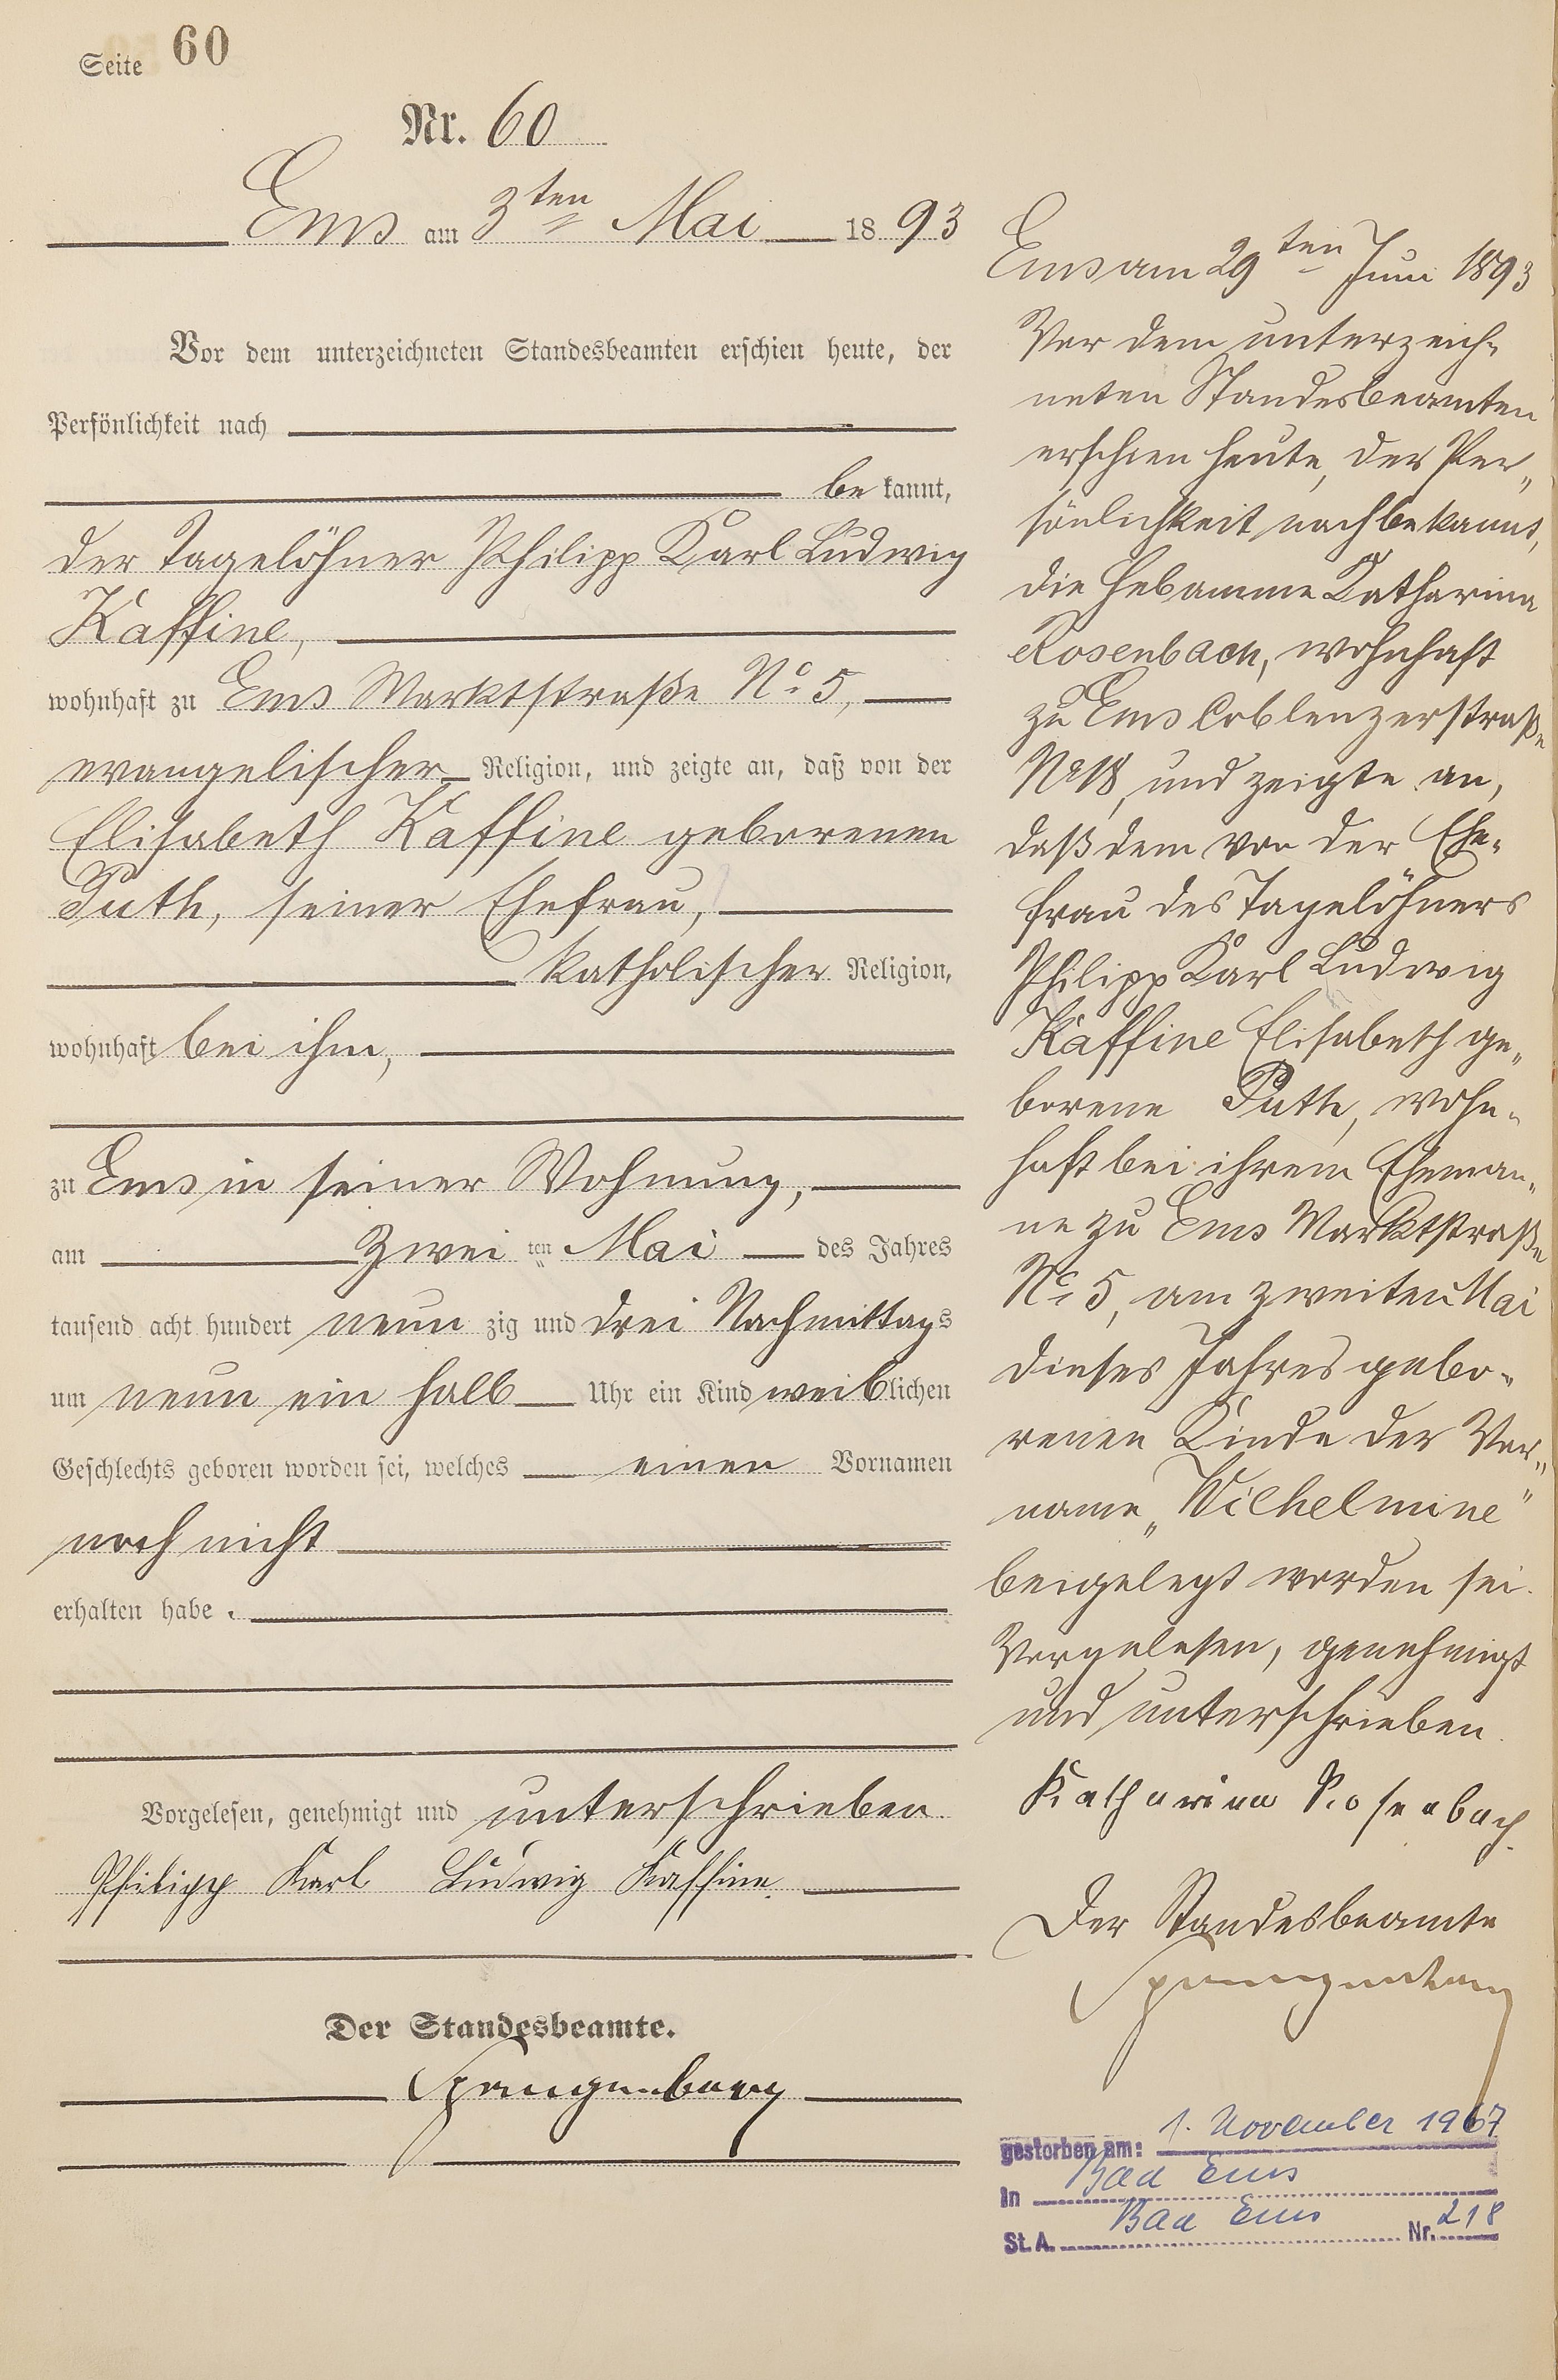 Seite 60
Nr. 60
Ems am 3ten Mai 1893
Vor dem unterzeichneten Standesbeamten erschien heute, der
Persönlichkeit nach
bekannt,
der Tagelöhner Philipp Karl Ludwig
Kaffine,
wohnhaft zu Ems Marktstraße No 5,
evangelischer Religion, und zeigte an, daß von der
Elisabeth Kaffine geborenen
Puth, seiner Ehefrau,
katholischer Religion,
wohnhaft bei ihm,
zu Ems in seiner Wohnung,
am Zwei ten Mai des Jahres
tausend acht hundert neun zig und drei Nachmittags
um neun ein halb Uhr ein Kind weiblichen
Geschlechts geboren worden sei, welches einen Vornamen
noch nicht
erhalten habe.
Vorgelesen, genehmigt und unterschrieben
Philipp Karl Ludwig Kaffine.
Der Standesbeamte.
Spangenberg
Ems am 29ten Juni 1893
Vor dem unterzeich-
neten Standesbeamten
erschien heute, der Per„
sönlichkeit nach bekannt,
die Hebamme Katharina
Rosenbach, wohnhaft
zu Ems Coblenzerstraße
No 18, und zeigte an,
daß dem von der Ehe-
frau des Tagelöhners
Philipp Karl Ludwig
Kaffine Elisabeth ge„
borene Puth, wohn-
haft bei ihrem Eheman„
ne zu Ems Marktstraße
No 5, am zweiten Mai
dieses Jahres gebo-
renen Kinde der Vor„
name „Wilhelmine"
beigelegt worden sei.
Vorgelesen, genehmigt
und unterschrieben.
Katharina Rosenbach.
Der Standesbeamte
Spangenberg
gestorben am: 1. November 1967
In Bad Ems
St. A. Bad Ems Nr. 218